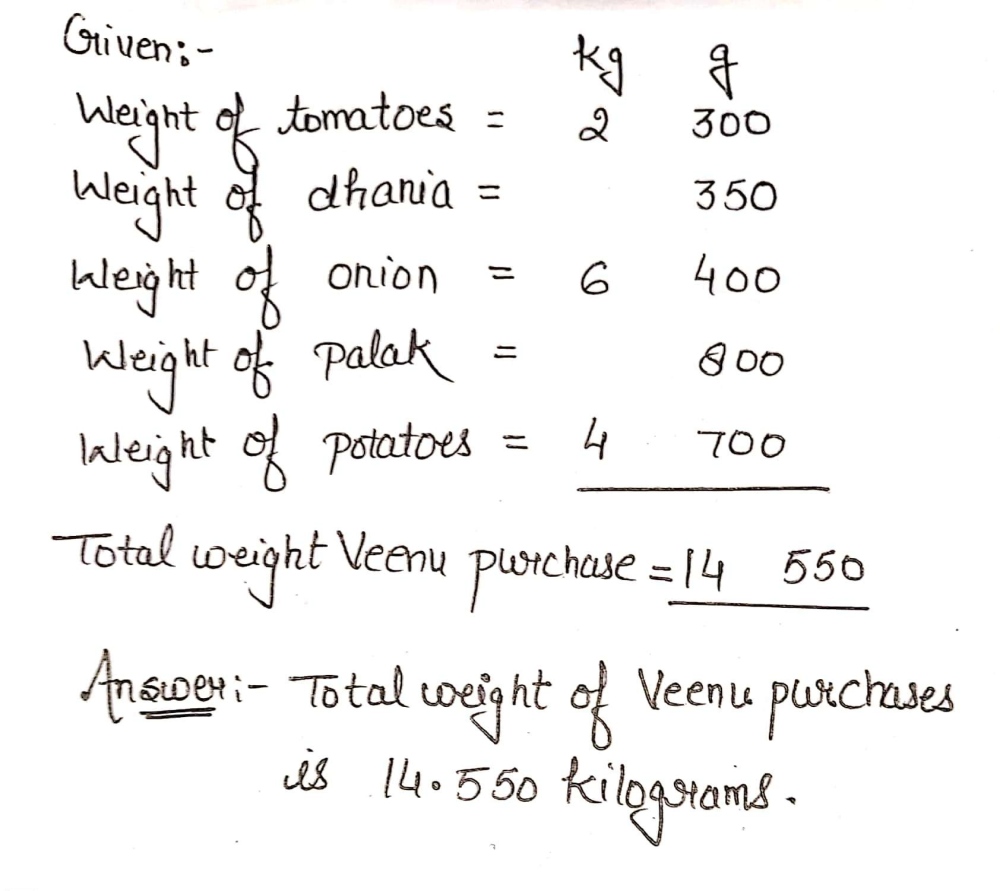 Given:-
kg g
Weight of tomatoes = 2 300
Weight of dhania = 350
Weight of onion = 6 400
Weight of palak = 800
Weight of potatoes = 4 700
Total weight Veenu purchase = 14 550
Answer:- Total weight of Veenu purchases
is 14.550 kilograms.